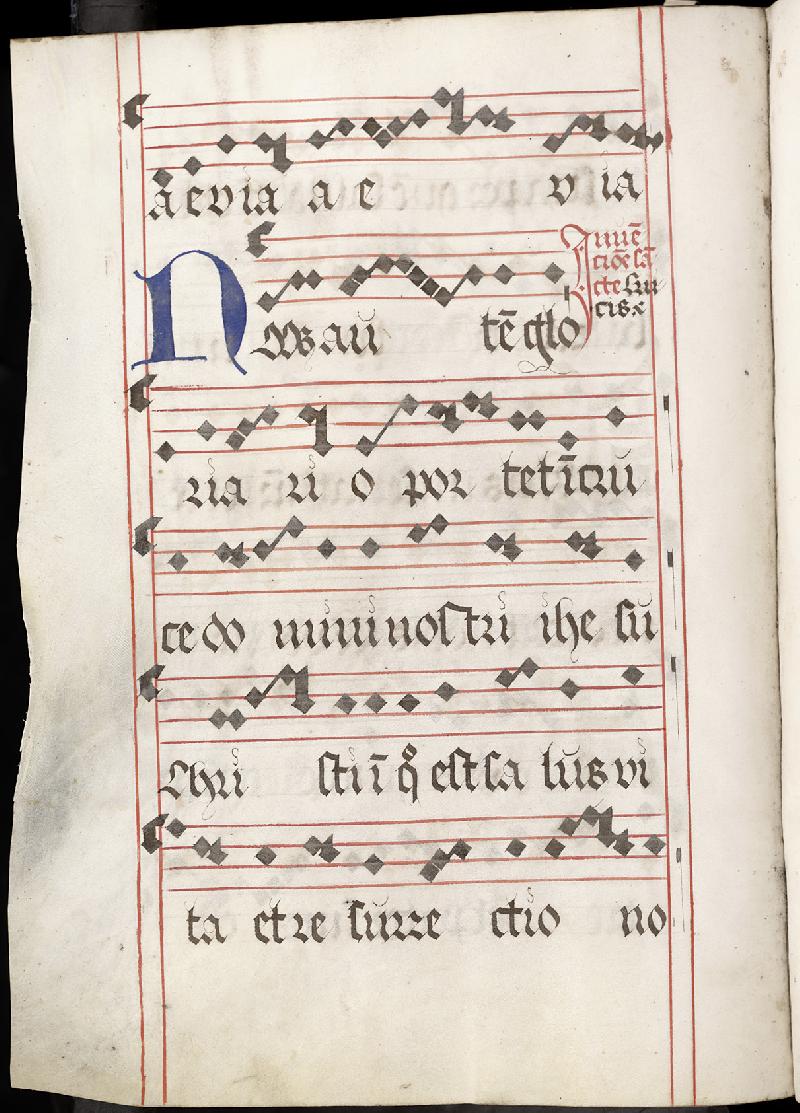 aevia a e v ia
Inuē
tiōe sā
cte cru
cis. x
Nos au tē glo
ria ri o por tet ī cru
ce do mini nostri ihe su
Chri sti ī q̊ est sa lus vi
ta et re surre ctio no